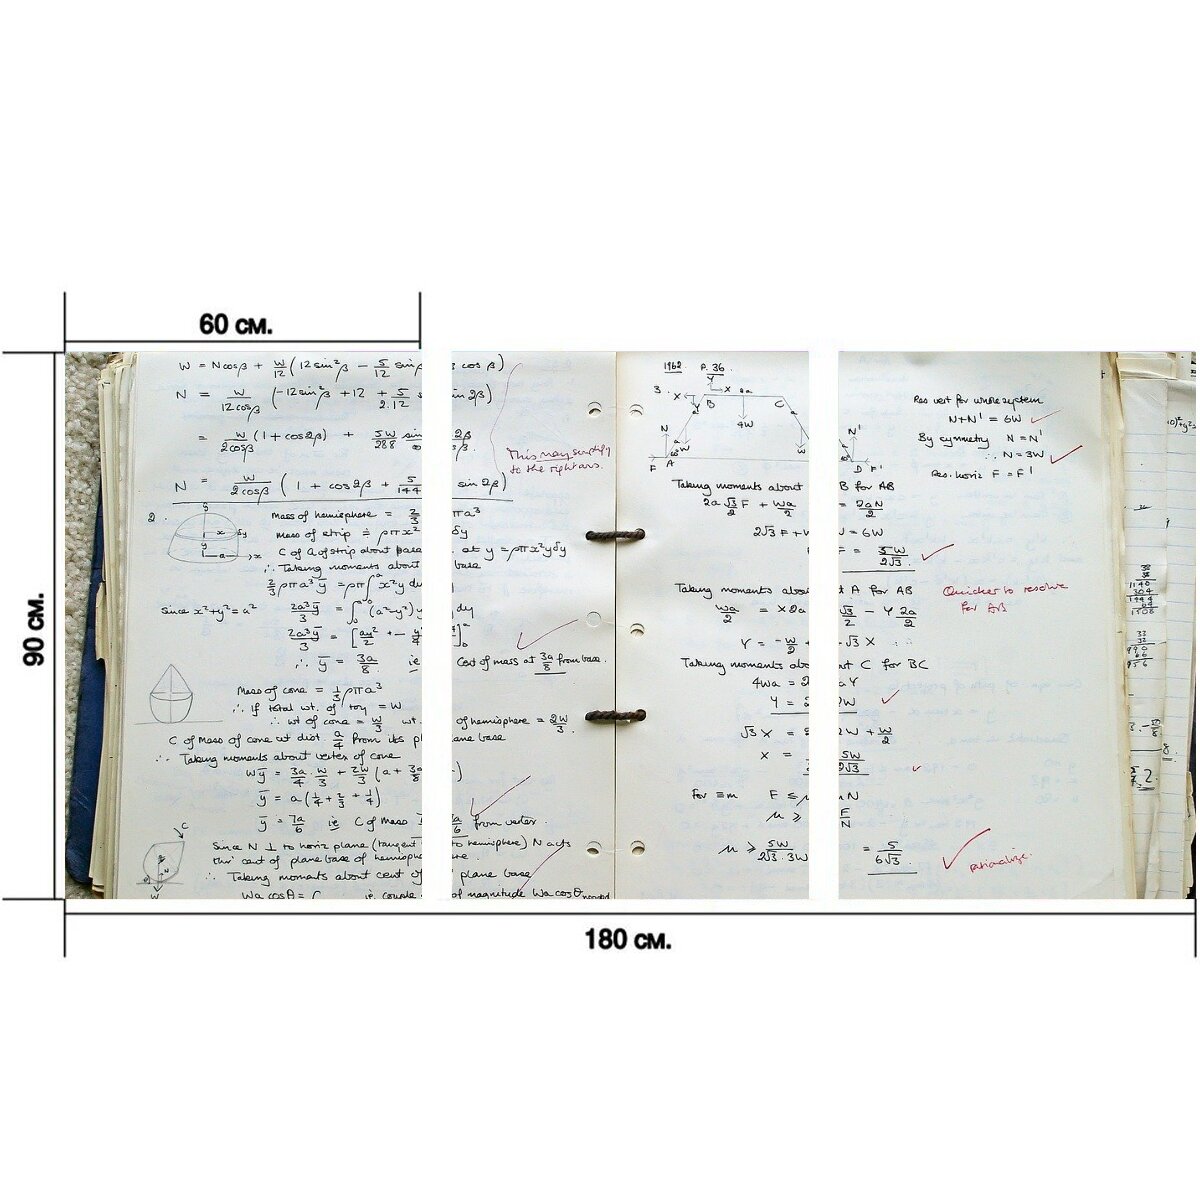 60 см.
90 см.
180 см.
W = Ncosβ + W/12 (12sin²β − 5/12 sinβ cosβ)
N = W/12cosβ (−12sin²β + 12 + 5/2.12 sin2β)
= W/2cosβ (1 + cos2β) + 5W/288 sin2β/cosβ
N = W/2cosβ (1 + cos2β + 5/144 sin2β)
This may simplify
to the right ans.
2.
Mass of hemisphere = 2/3 ρπa³
Mass of strip ≡ ρπx²δy
C of G of strip about base at y = ρπx²yδy
∴ Taking moments about base
2/3 ρπa³ȳ = ρπ∫x²y dy
Since x²+y²=a²
2a³ȳ/3 = ∫(a²−y²)y dy
∴ ȳ = 3a/8 ie Cent of mass at 3a/8 from base.
Mass of cone = 1/3 ρπa³
∴ If total wt. of toy = W
∴ wt of cone = W/3 wt. of hemisphere = 2W/3.
C of Mass of cone at dist. a/4 from its plane base
∴ Taking moments about vertex of cone
Wȳ = 3a/4 . W/3 + 2W/3 (a + 3a/8)
ȳ = a(1/4 + 2/3 + 1/4)
ȳ = 7a/6 ie C of Mass 7a/6 from vertex.
Since N ⊥ to horiz plane (tangent to hemisphere) N acts
thro' cent of plane base of hemisphere.
∴ Taking moments about cent of plane base
Wa cosθ = ie. couple of magnitude Wa cosθ needed
1962 P. 36.
3.
Taking moments about B for AB
2a √3/2 F + Wa/2 = 2aN/2
2√3 F + W = 6W
F = 5W/2√3.
Taking moments about A for AB
Wa/2 = X2a √3/2 − Y 2a/2
Y = −W/2 + √3 X
Taking moments about C for BC
4Wa = 2aY
Y = 2W
√3 X = 2W + W/2
X = 5W/2√3
For ≡m F ≤ μN
μ ≥ F/N
μ ≥ 5W/2√3.3W = 5/6√3.
Res vert for whole system
N+N' = 6W
By symmetry N = N'
∴ N = 3W
Res. horiz F = F'
Quicker to resolve
for AB
rationalize.